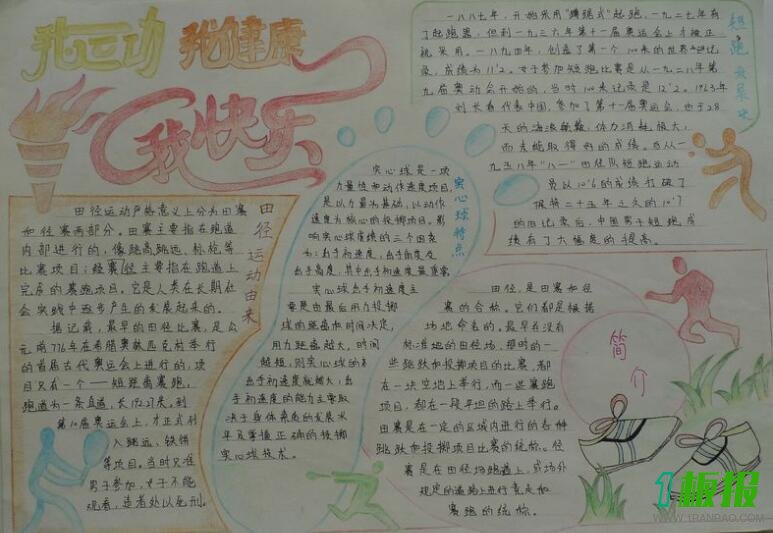 我运动 我健康
我快乐
田径运动由来
田径运动严格意义上分为田赛
和径赛两部分。田赛主要指在跑道
内部进行的,像跳高跳远、标枪等
比赛项目;径赛主要指在跑道上
完成的赛跑项目。它是人类在长期社
会实践中逐步产生的发展起来的。
据记载,最早的田径比赛,是公
元前776年在希腊奥林匹克村举行
的首届古代奥运会上进行的,项
目只有一个——短距离赛跑,
跑道为一条直道,长192.27米。到
届奥运会上,才正式列
入跳远、铁饼
等项目。当时只准
男子参加,女子不能
观看,违者处以死刑。
实心球特点
实心球是一项
力量性和动作速度项目,
是以力量为基础,以动作
速度为核心的投掷项目。影
响实心球成绩的三个因素
为:出手初速度、出手角度及
出手高度,其中出手初速度最重要,
实心球出手初速度主
要是由最后用力投掷
球的距离和时间决定,
用力距离越大,时间
越短,则实心球的
出手初速度就越大,出
手初速度的能力主要取
决于身体素质的发展水
平及掌握正确的投掷
实心球技术。
短跑发展史
一八八七年,开始采用“蹲踞式”起跑,一九二七年有
了起跑器,但到一九三六年第十一届奥运会上才被正
式采用。一八九四年,创造了第一个100米的世界
录,成绩为11″2。女子参加短跑比赛是从一九二八年第
九届奥动会开始的,当时100米记录是12″2。1923年
刘长春代表中国,参加了第十届奥运会,由于28
天的海浪颠簸,体力消耗极大,
而未能取得好的成绩。
一九五八年“八一”田径队短跑运动
员以10″6的成绩打破了
保持二十五年之久的10″7
的旧记录后,中国男子短跑成
绩有了大幅度的提高。
简介
田径,是田赛和径
赛的合称。它们都是根据
场地命名的。最早在没有
标准地的田径场,那时的一
些跳跃和投掷项目的比赛,都
在一块空地上举行,而一些赛跑
项目,都在一段平坦的路上举行。
田赛是在一定的区域内进行的各种
跳跃和投掷项目比赛的统称。径
赛是在田径场跑道上,或场外
规定的道路上进行竞走和
赛跑的统称。
1板报
WWW.1BANBAO.COM